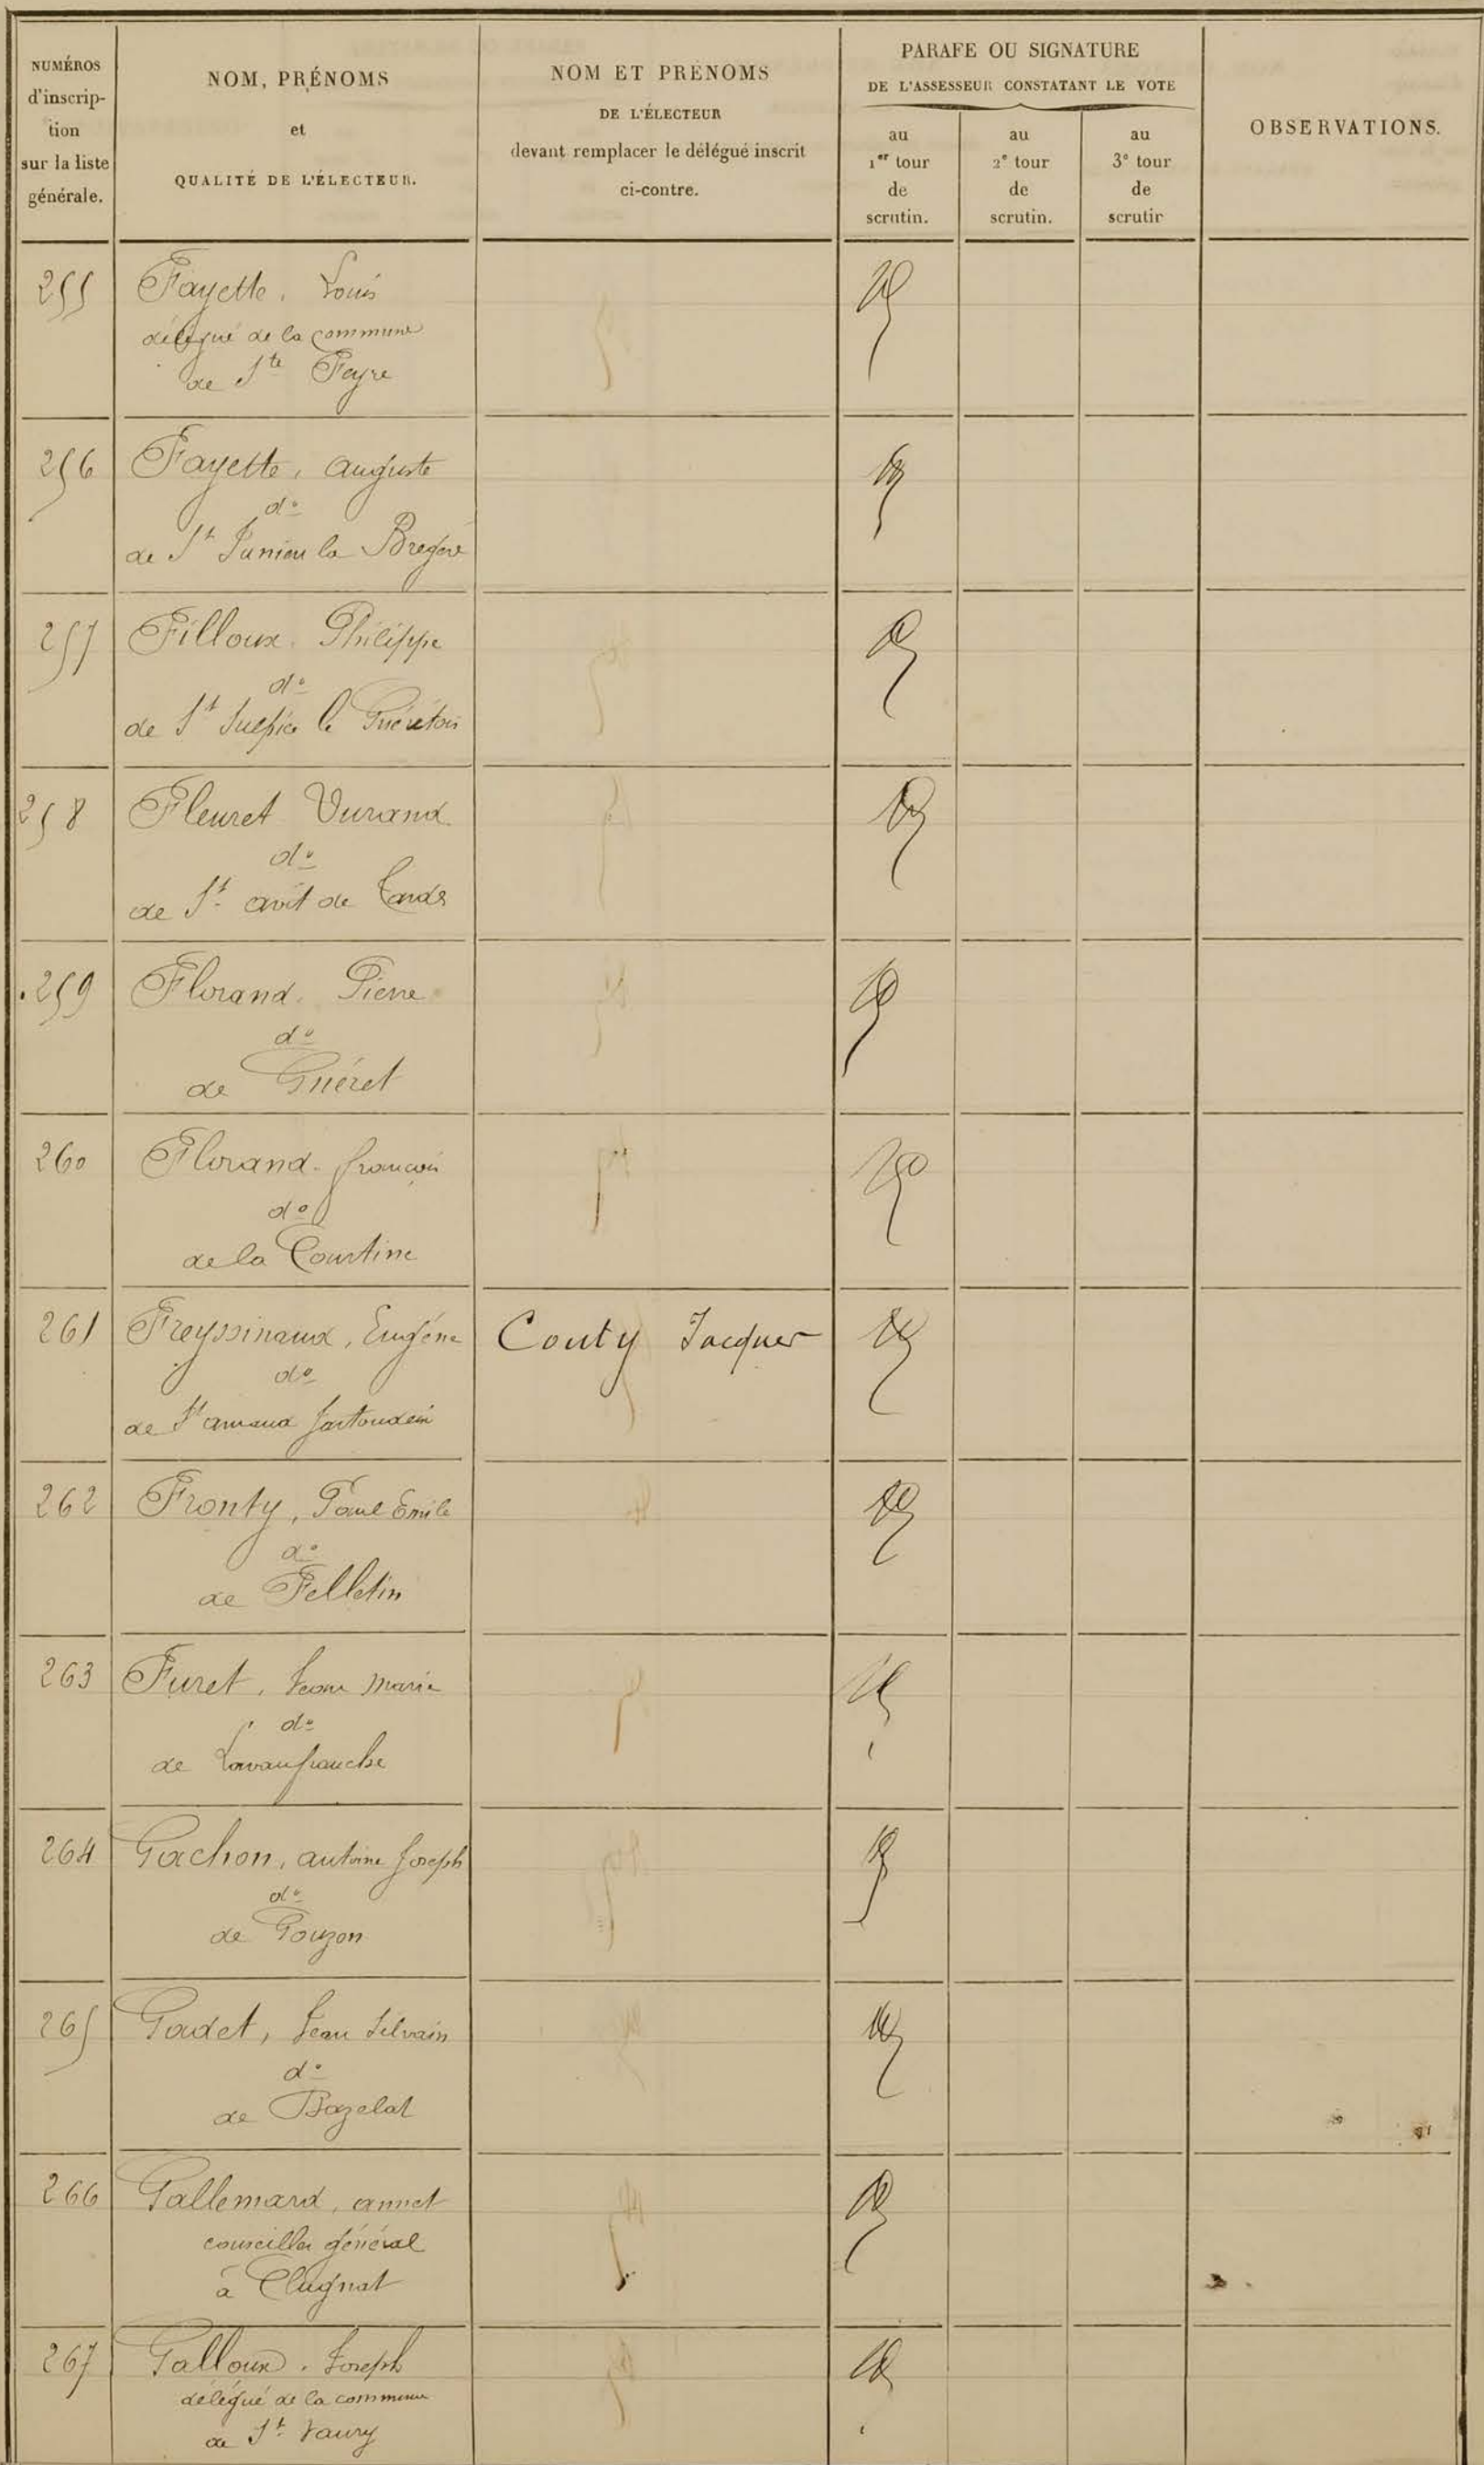 NUMÉROS
d'inscrip-
tion
sur la liste
générale.
NOM, PRÉNOMS
et
QUALITÉ DE L'ÉLECTEUR.
NOM ET PRÉNOMS
DE L'ÉLECTEUR
devant remplacer le délégué inscrit
ci-contre.
PARAFE OU SIGNATURE
DE L'ASSESSEUR CONSTATANT LE VOTE
au
1er tour
de
scrutin.
au
2e tour
de
scrutin.
au
3e tour
de
scrutin
OBSERVATIONS.
255 Fayette, Louis
délégué de la commune
de Ste Feyre
256 Fayette, auguste
do
de St Junien la Bregère
257 Filloux. Philippe
do
de St Sulpice le Guérétois
258 Fleuret Durand
do
de St avit de Tardes
259 Florand. Pierre
do
de Guéret
260 Florand. françois
do
de la Courtine
261 Freyssinaux, Eugène Couty Jacques
do
de St amand Jartoudeix
262 Fronty, Paul Emile
do
de Felletin
263 Furet, Jean Marie
do
de Lavaufranche
264 Gachon, antoine Joseph
do
de Gouzon
265 Gadet, Jean Silvain
do
de Bazelat
266 Gallemard, annet
conseiller général
à Clugnat
267 Galloux. Joseph
délégué de la commune
de St Vaury